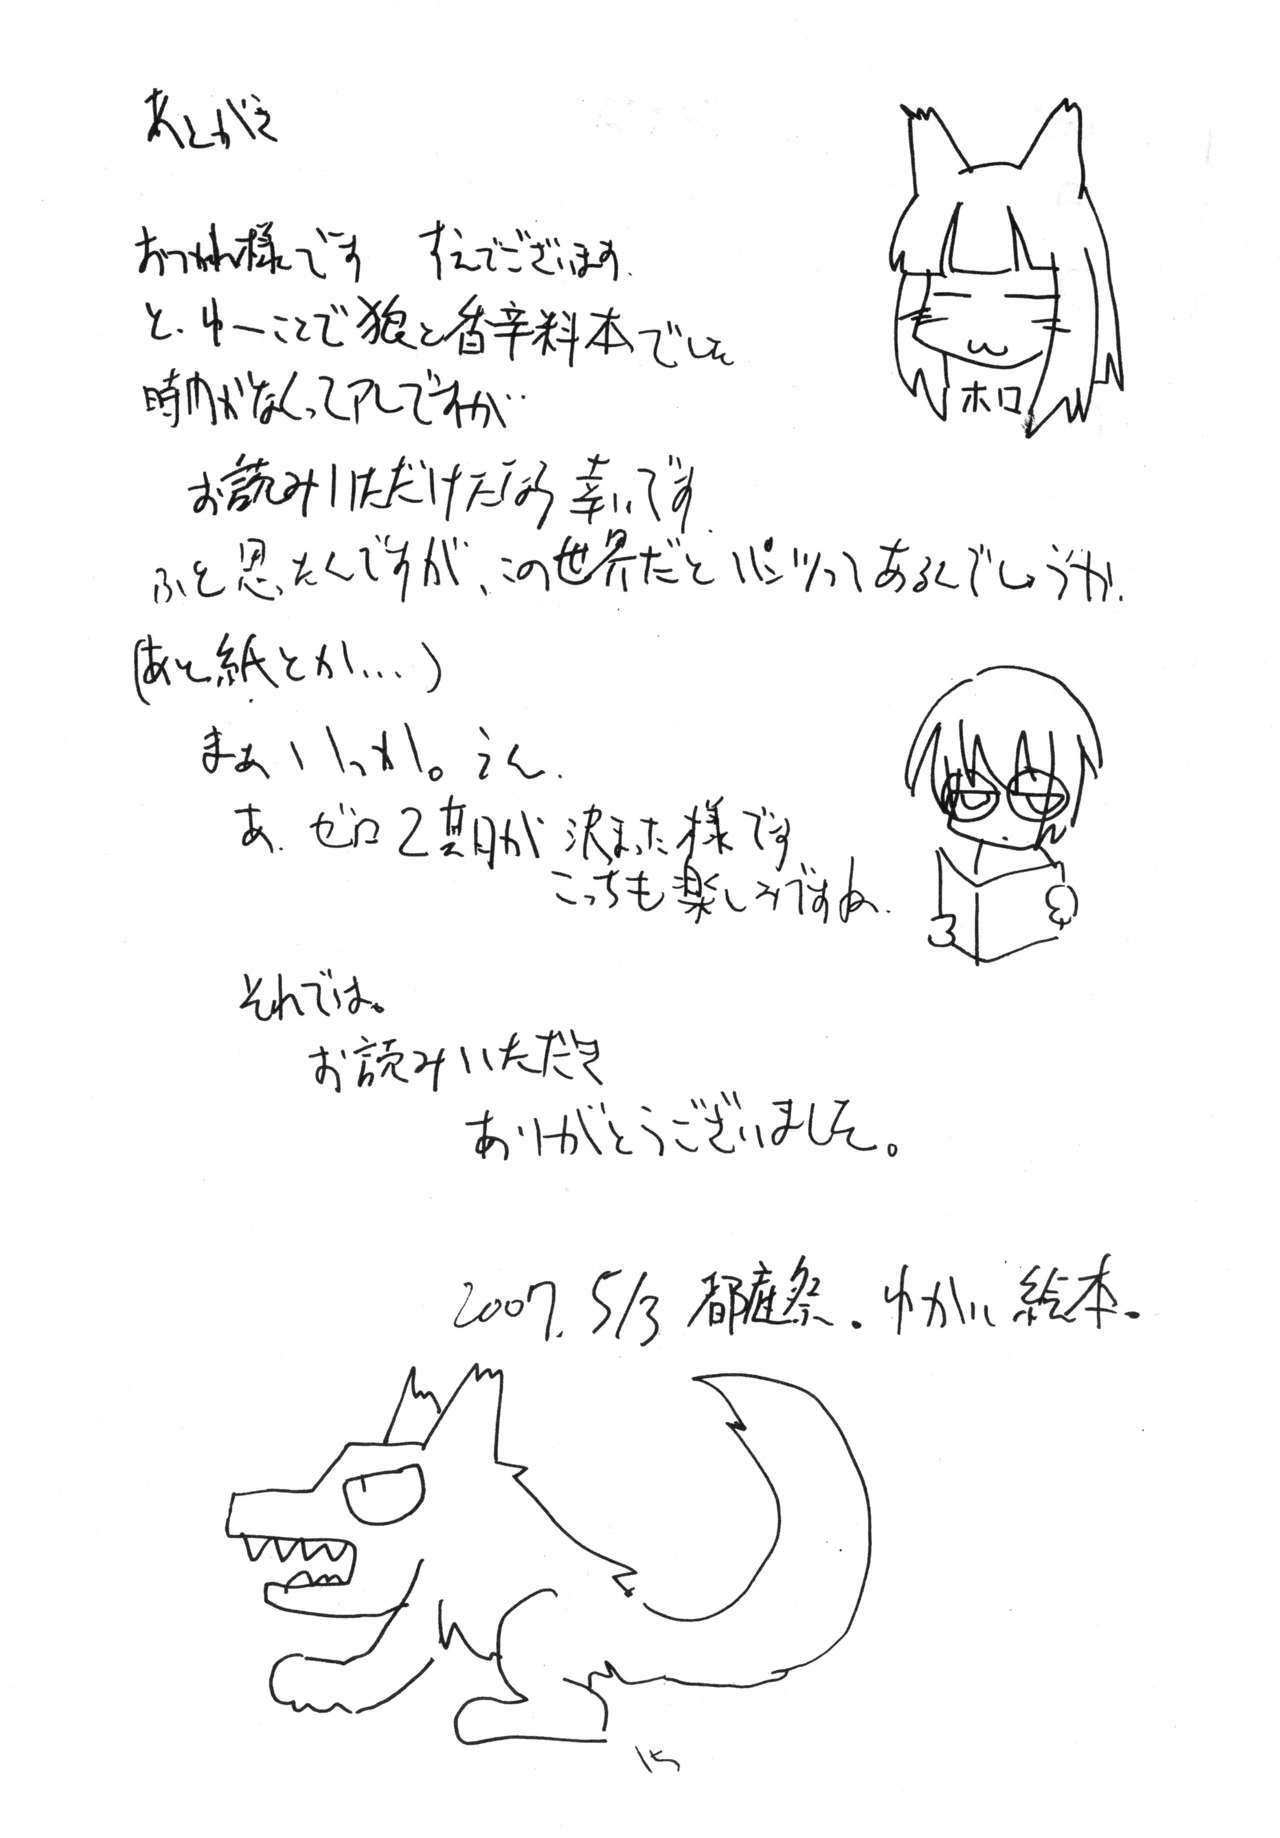 あとがき
おつかれ様です すえでございます.
と、ゆーことで狼と香辛料本でした
時間がなくってアレですが…
ホロ
お読みいただけたなら幸いです.
ふと思ったんですが、この世界だとパンツってあるんでしょうか.
(あと紙とか....)
まぁいっか。うん.
あ.ゼロ2期が決まった様です
こっちも楽しみですね.
それでは。
お読みいただき
ありがとうございました。
2007.5/3 都庭祭.ゆかい絵本.
15